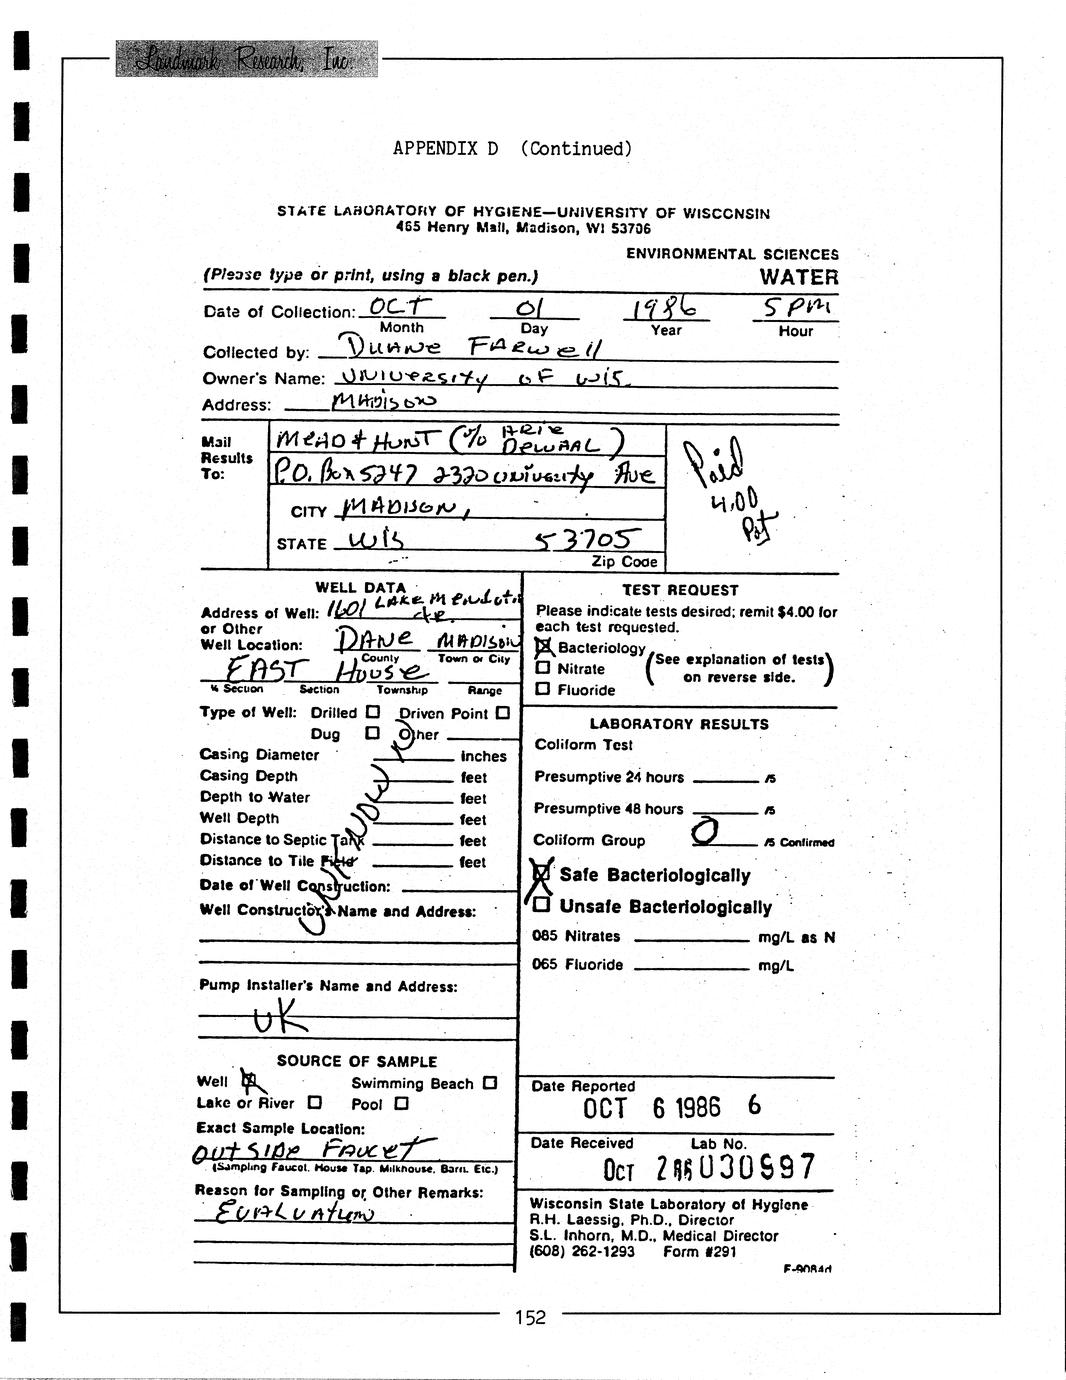 Landmark Research, Inc.
APPENDIX D (Continued)
STATE LABORATORY OF HYGIENE—UNIVERSITY OF WISCONSIN
465 Henry Mall, Madison, WI 53706
ENVIRONMENTAL SCIENCES
(Please type or print, using a black pen.) WATER
Date of Collection: OCT 01 1986 5 PM
Month Day Year Hour
Collected by: DUANE FARWELL
Owner's Name: UNIVERSITY OF WIS.
Address: MADISON
Mail Results To:
MEAD & HUNT (% ARIE DEWAAL)
P.O. Box 5247 2320 UNIVERSITY AVE
CITY MADISON,
STATE WIS 53705
Zip Code
Paid
4.00
WELL DATA
Address of Well: 1601 LAKE Mendota dr.
or Other
Well Location: DANE MADISON
County Town or City
EAST HOUSE
¼ Section Section Township Range
Type of Well: Drilled ☐ Driven Point ☐
Dug ☐ Other
Casing Diameter inches
Casing Depth feet
Depth to Water feet
Well Depth feet
Distance to Septic Tank feet
Distance to Tile Field feet
UNKNOWN
Date of Well Construction:
Well Constructor's Name and Address:
Pump Installer's Name and Address:
UK
SOURCE OF SAMPLE
Well ☒ Swimming Beach ☐
Lake or River ☐ Pool ☐
Exact Sample Location:
OUTSIDE FAUCET
(Sampling Faucet, House Tap, Milkhouse, Barn, Etc.)
Reason for Sampling or Other Remarks:
EVALUATION
TEST REQUEST
Please indicate tests desired; remit $4.00 for
each test requested.
☒ Bacteriology
☐ Nitrate
☐ Fluoride
(See explanation of tests
on reverse side.)
LABORATORY RESULTS
Coliform Test
Presumptive 24 hours /5
Presumptive 48 hours /5
Coliform Group 0 /5 Confirmed
☒ Safe Bacteriologically
☐ Unsafe Bacteriologically
085 Nitrates mg/L as N
065 Fluoride mg/L
Date Reported
OCT 6 1986 6
Date Received Lab No.
OCT 2 86 030997
Wisconsin State Laboratory of Hygiene
R.H. Laessig, Ph.D., Director
S.L. Inhorn, M.D., Medical Director
(608) 262-1293 Form #291
F-9084d
152